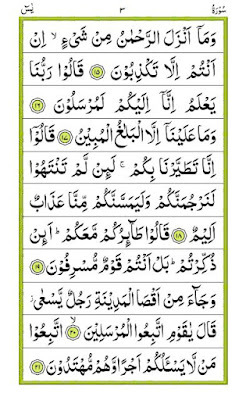 سُوْرَةُ ٣ يٰسٓ
وَمَاۤ اَنْزَلَ الرَّحْمٰنُ مِنْ شَیْءٍ ۙ اِنْ
اَنْتُمْ اِلَّا تَكْذِبُوْنَ ﴿۱۵﴾ قَالُوْا رَبُّنَا
یَعْلَمُ اِنَّاۤ اِلَیْكُمْ لَمُرْسَلُوْنَ ﴿۱۶﴾
وَمَا عَلَیْنَاۤ اِلَّا الْبَلٰغُ الْمُبِیْنُ ﴿۱۷﴾ قَالُوْۤا
اِنَّا تَطَیَّرْنَا بِكُمْ ۚ لَئِنْ لَّمْ تَنْتَهُوْا
لَنَرْجُمَنَّكُمْ وَلَیَمَسَّنَّكُمْ مِّنَّا عَذَابٌ
اَلِیْمٌ ﴿۱۸﴾ قَالُوْا طَآئِرُكُمْ مَّعَكُمْ ؕ اَئِنْ
ذُكِّرْتُمْ ؕ بَلْ اَنْتُمْ قَوْمٌ مُّسْرِفُوْنَ ﴿۱۹﴾
وَجَآءَ مِنْ اَقْصَا الْمَدِیْنَةِ رَجُلٌ یَّسْعٰی ؗ
قَالَ یٰقَوْمِ اتَّبِعُوا الْمُرْسَلِیْنَ ﴿۲۰﴾ اتَّبِعُوْا
مَنْ لَّا یَسْـَٔلُكُمْ اَجْرًا وَّهُمْ مُّهْتَدُوْنَ ﴿۲۱﴾